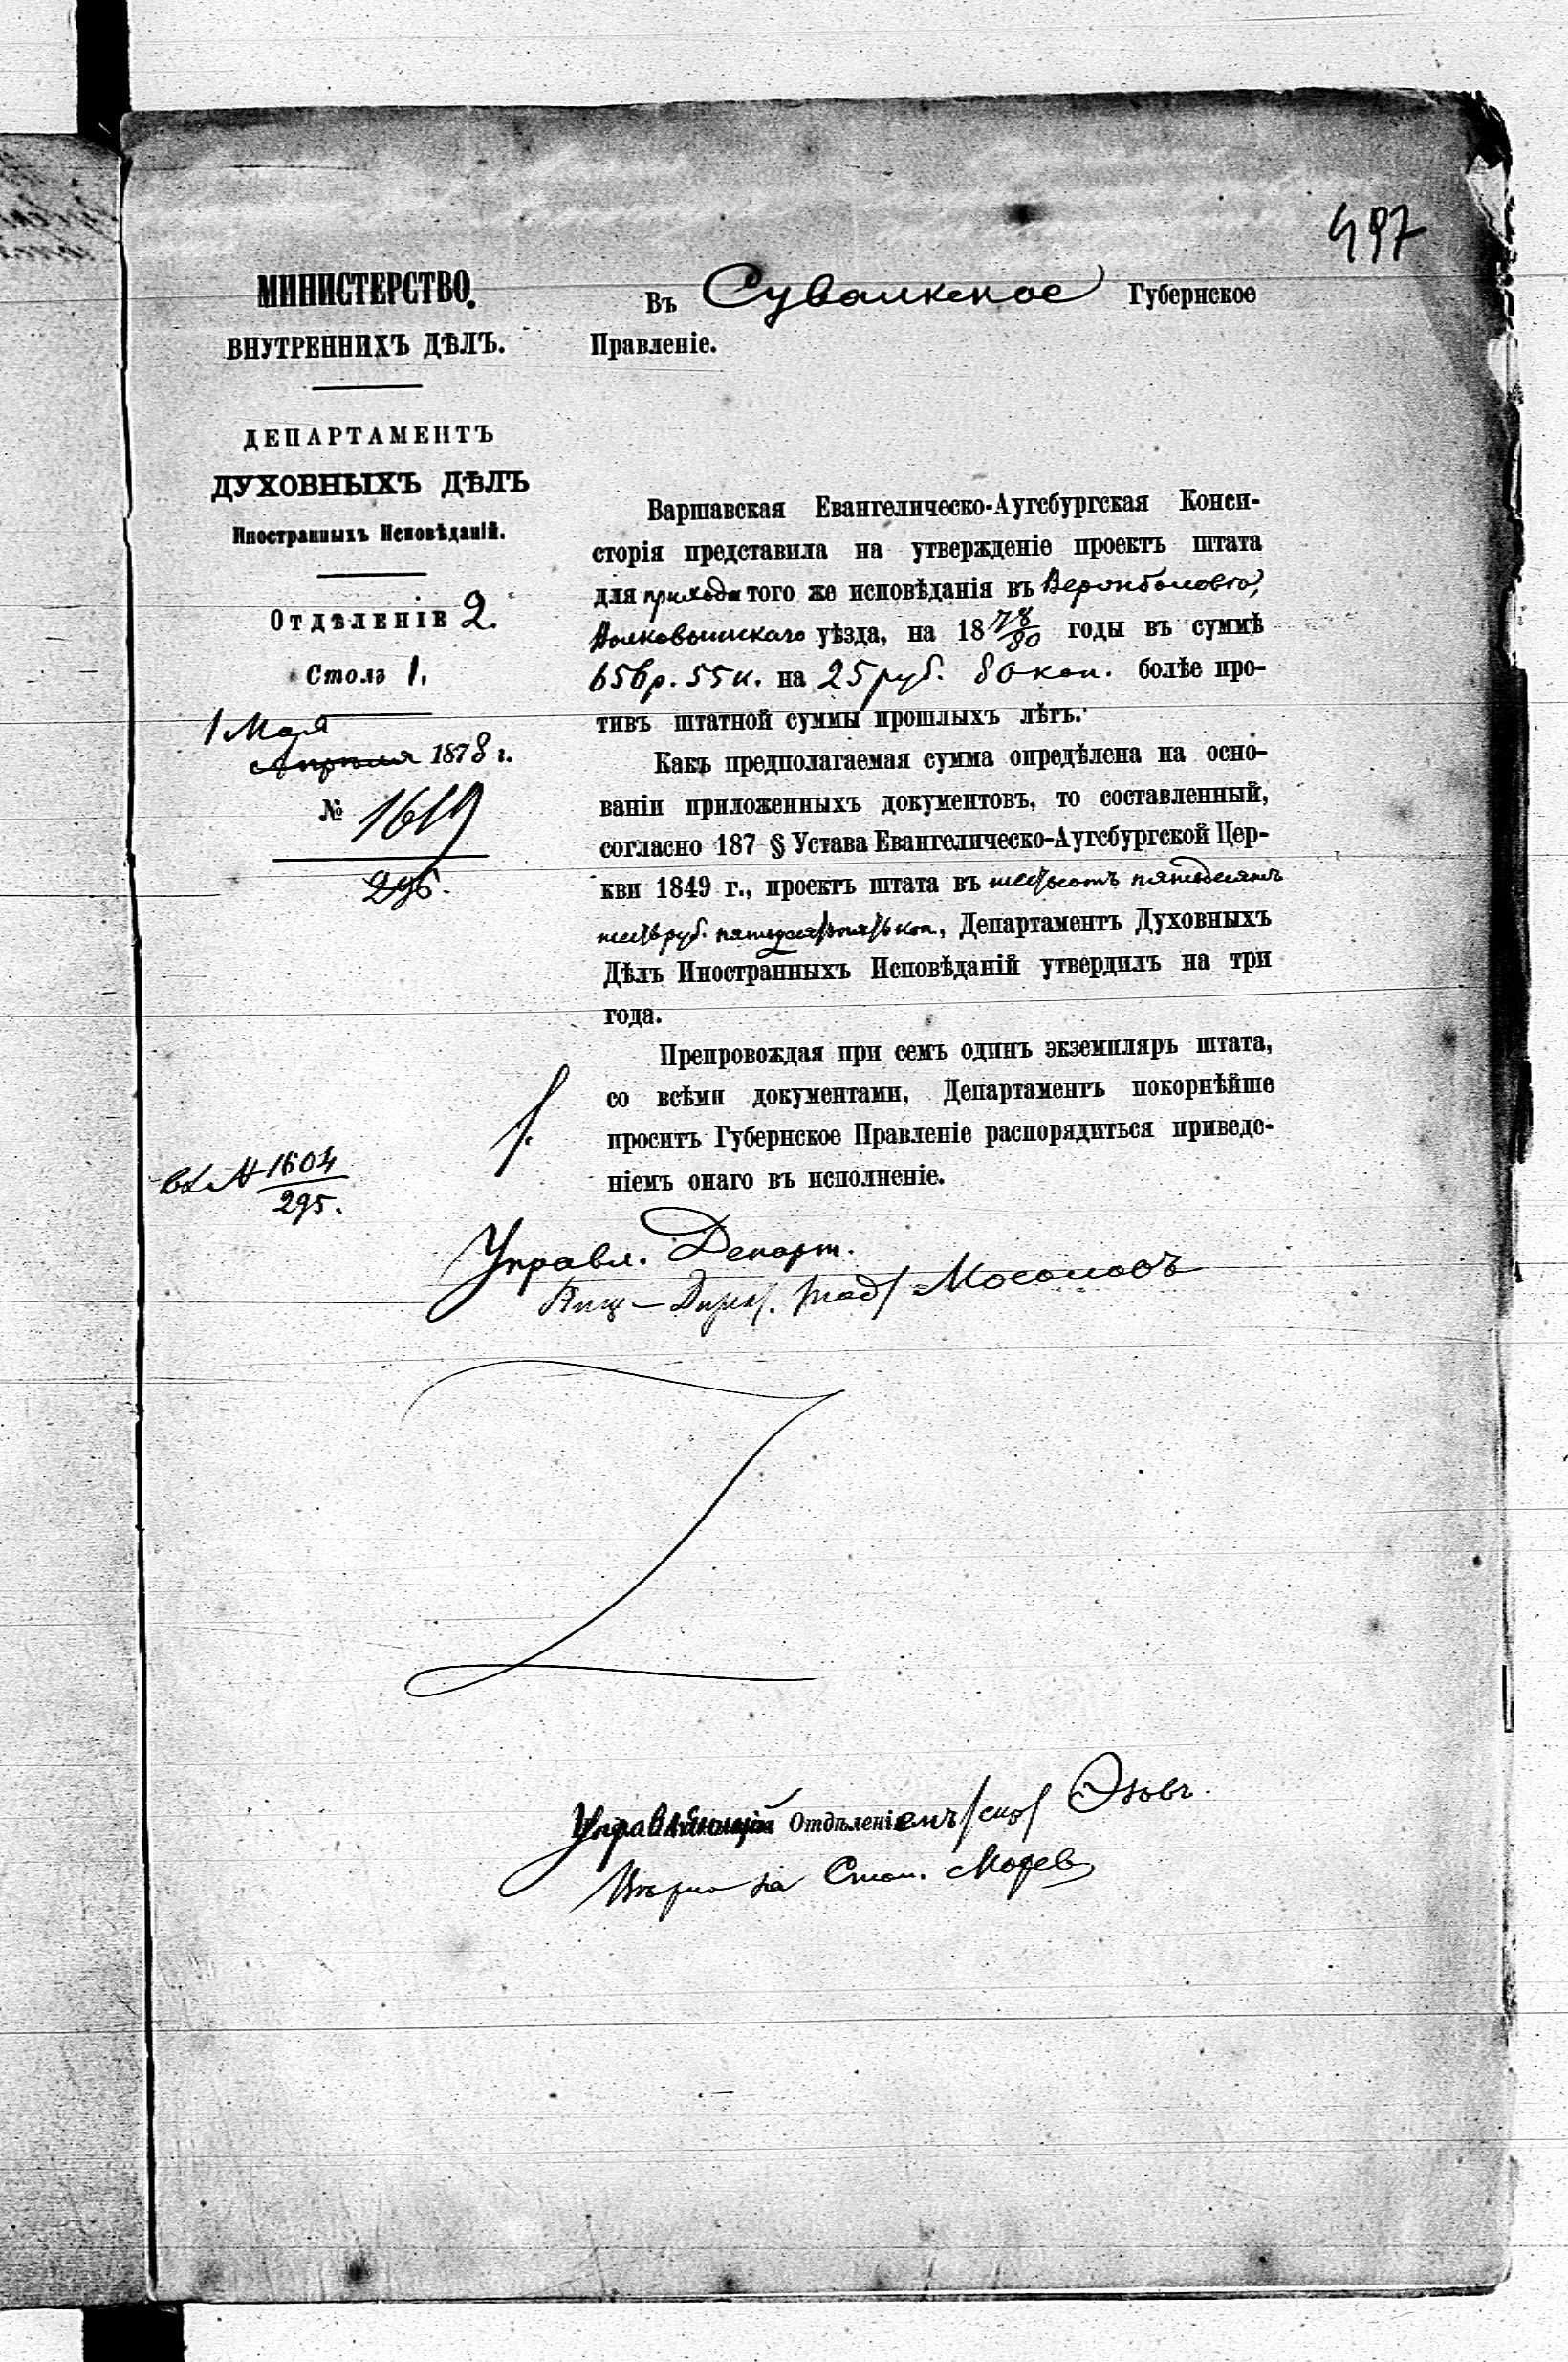 497
МИНИСТЕРСТВО
ВНУТРЕННИХЪ ДѢЛЪ.
ДЕПАРТАМЕНТЪ
ДУХОВНЫХЪ ДѢЛЪ
Иностранныхъ Исповѣданій.
Отдѣленіе 2.
Столъ 1.
1 Мая
Апрѣля 1878 г.
№ 1619
295.
вх. № 1604
295.
Въ Сувалкское Губернское
Правленіе.
Варшавская Евангелическо-Аугсбургская Конси-
сторія представила на утвержденіе проектъ штата
для прихода того же исповѣданія въ Вержболово,
Волковышскаго уѣзда, на 18 78/80 годы въ суммѣ
656 р. 55 к. на 25 руб. 80 коп. болѣе про-
тивъ штатной суммы прошлыхъ лѣтъ.
Какъ предполагаемая сумма опредѣлена на осно-
ваніи приложенныхъ документовъ, то составленный,
согласно 187 § Устава Евангелическо-Аугсбургской Цер-
кви 1849 г., проектъ штата въ шестьсотъ пятьдесятъ
шесть руб. пятьдесятъ пять коп., Департаментъ Духовныхъ
Дѣлъ Иностранныхъ Исповѣданій утвердилъ на три
года.
Препровождая при семъ одинъ экземпляръ штата,
со всѣми документами, Департаментъ покорнѣйше
проситъ Губернское Правленіе распорядиться приведе-
ніемъ онаго въ исполненіе.
Управл. Департ.
Вице-Дирек. /под/ Мосоловъ
Управляющій Отдѣленіемъ /скр/
Вѣрно за Стол.